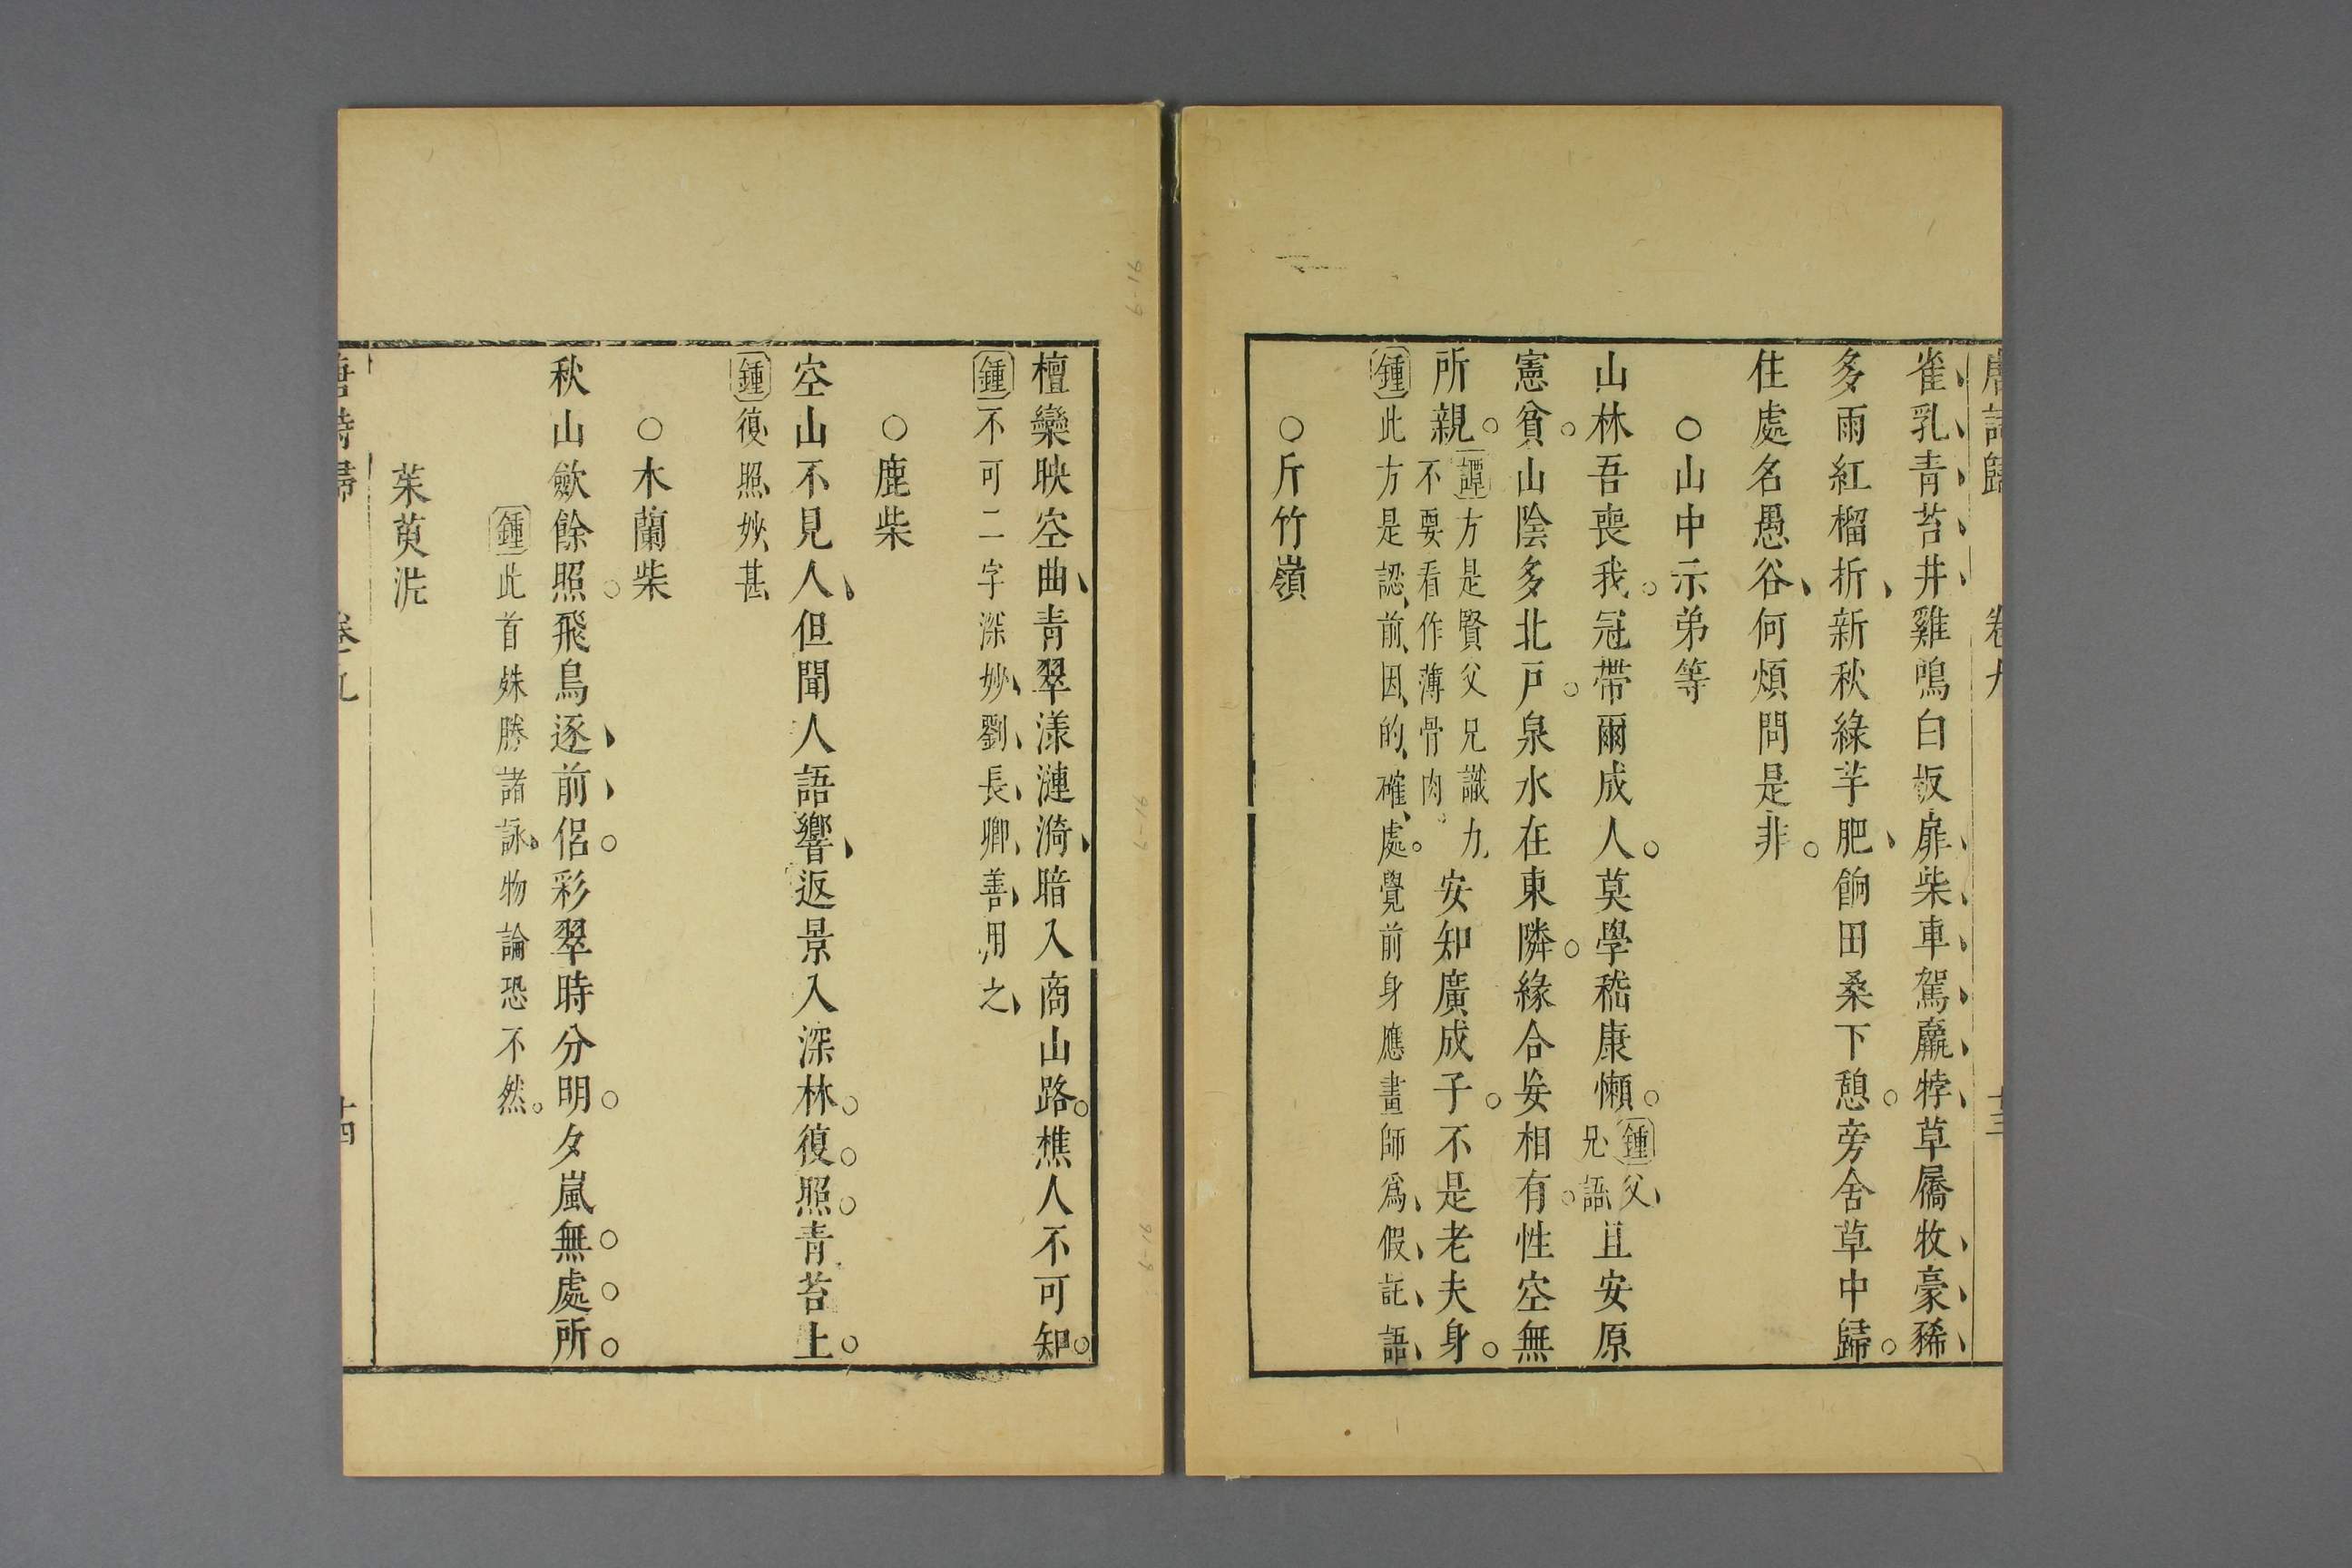 唐詩歸 卷九 十三
雀乳青苔井雞鳴白板扉柴車駕羸牸草屩牧豪豨
多雨紅榴折新秋綠芋肥餉田桑下憩旁舍草中歸
住處名愚谷何煩問是非
○山中示弟等
山林吾喪我冠帶爾成人莫學嵇康懶鍾父兄語且安原
憲貧山陰多北戸泉水在東隣緣合妄相有性空無
所親譚方是賢父兄識力不要看作薄骨肉安知廣成子不是老夫身
鍾此方是認前因的確處覺前身應畫師爲假託語
○斤竹嶺
檀欒映空曲青翠漾漣漪暗入商山路樵人不可知
鍾不可二字深妙劉長卿善用之
○鹿柴
空山不見人但聞人語響返景入深林復照青苔上
鍾復照妙甚
○木蘭柴
秋山斂餘照飛鳥逐前侶彩翠時分明夕嵐無處所
鍾此首殊勝諸詠物論恐不然
茱萸沜
唐詩歸 卷九 十四